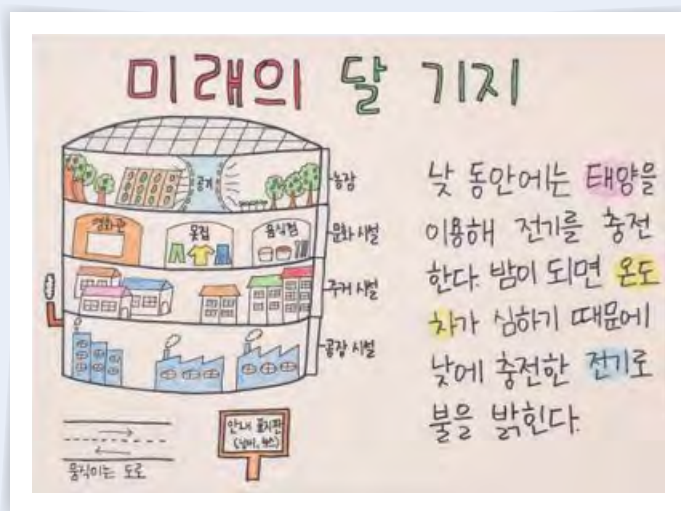 미래의 달 기지
공기
농장
영화관
옷집
음식점
문화 시설
주거 시설
공장 시설
움직이는 도로
안내 표지판
낮 동안에는 태양을
이용해 전기를 충전
한다. 밤이 되면 온도
차가 심하기 때문에
낮에 충전한 전기로
불을 밝힌다.